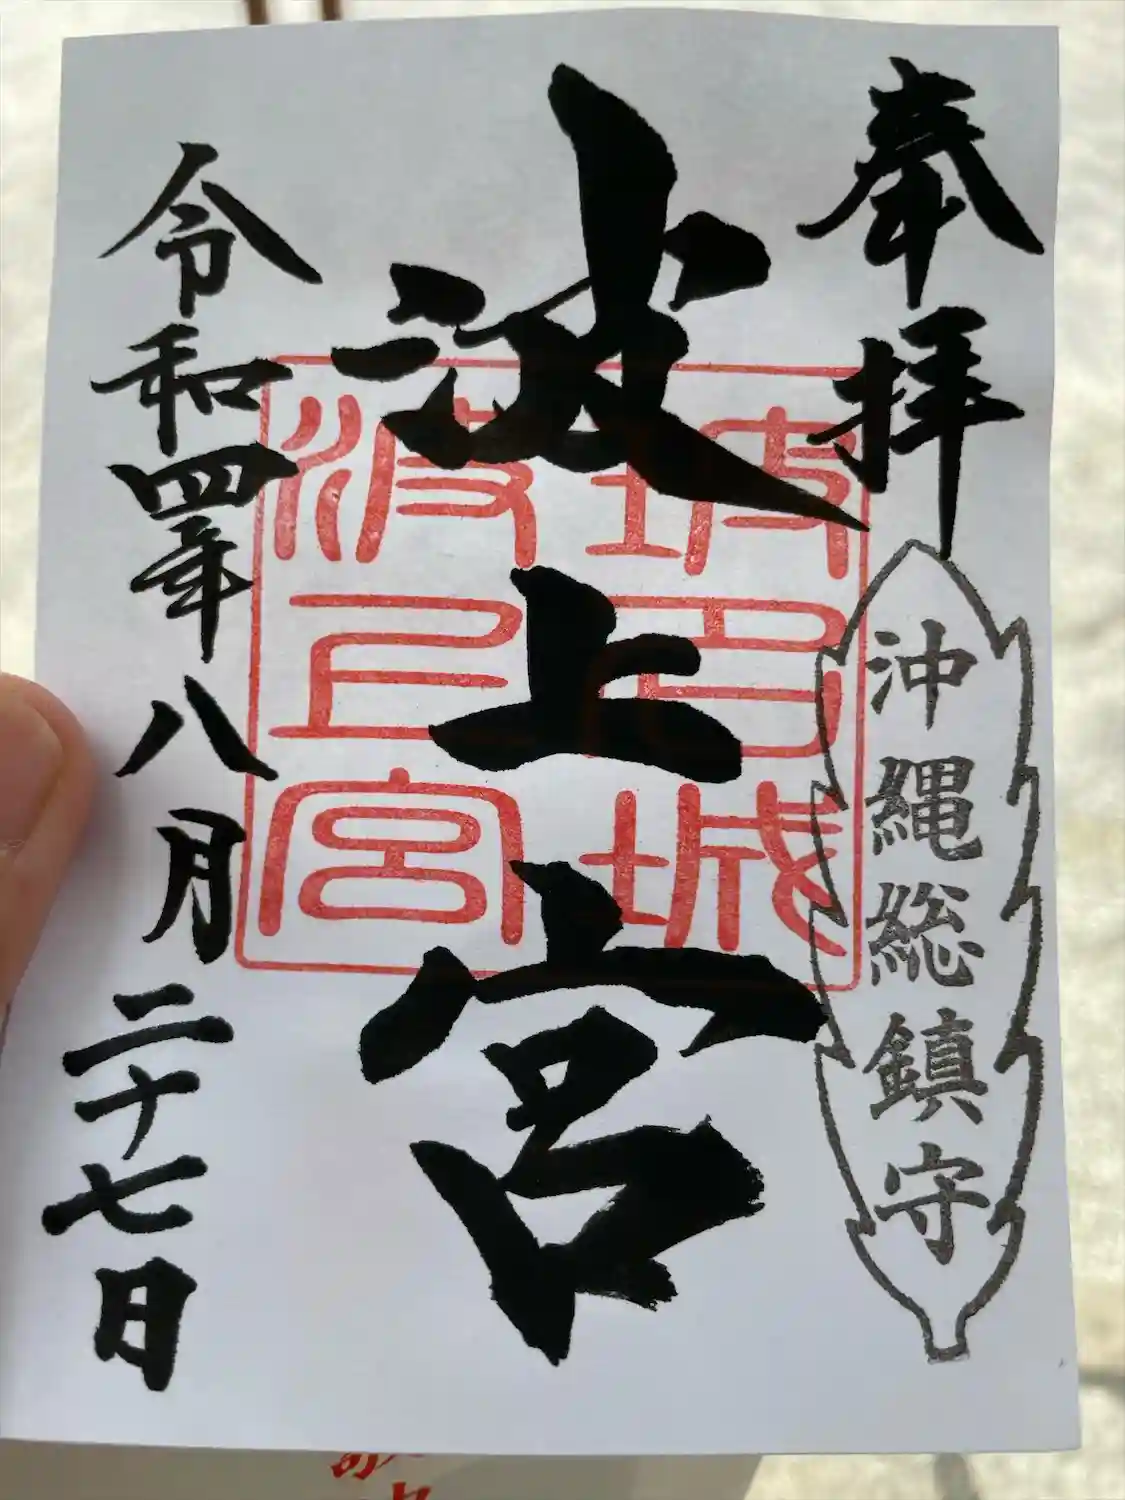 奉拝
沖縄総鎮守
波上宮
琉球国
波上宮
令和四年八月二十七日